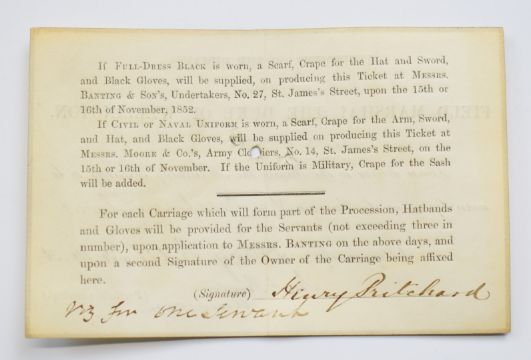 If Full-Dress Black is worn, a Scarf, Crape for the Hat and Sword,
and Black Gloves, will be supplied, on producing this Ticket at Messrs.
Banting & Son's, Undertakers, No. 27, St. James's Street, upon the 15th or
16th of November, 1852.
If Civil or Naval Uniform is worn, a Scarf, Crape for the Arm, Sword,
and Hat, and Black Gloves, will be supplied on producing this Ticket at
Messrs. Moore & Co.'s, Army Clothiers, No. 14, St. James's Street, on the
15th or 16th of November. If the Uniform is Military, Crape for the Sash
will be added.
For each Carriage which will form part of the Procession, Hatbands
and Gloves will be provided for the Servants (not exceeding three in
number), upon application to Messrs. Banting on the above days, and
upon a second Signature of the Owner of the Carriage being affixed
here.
(Signature) Henry Pritchard
for one Servant